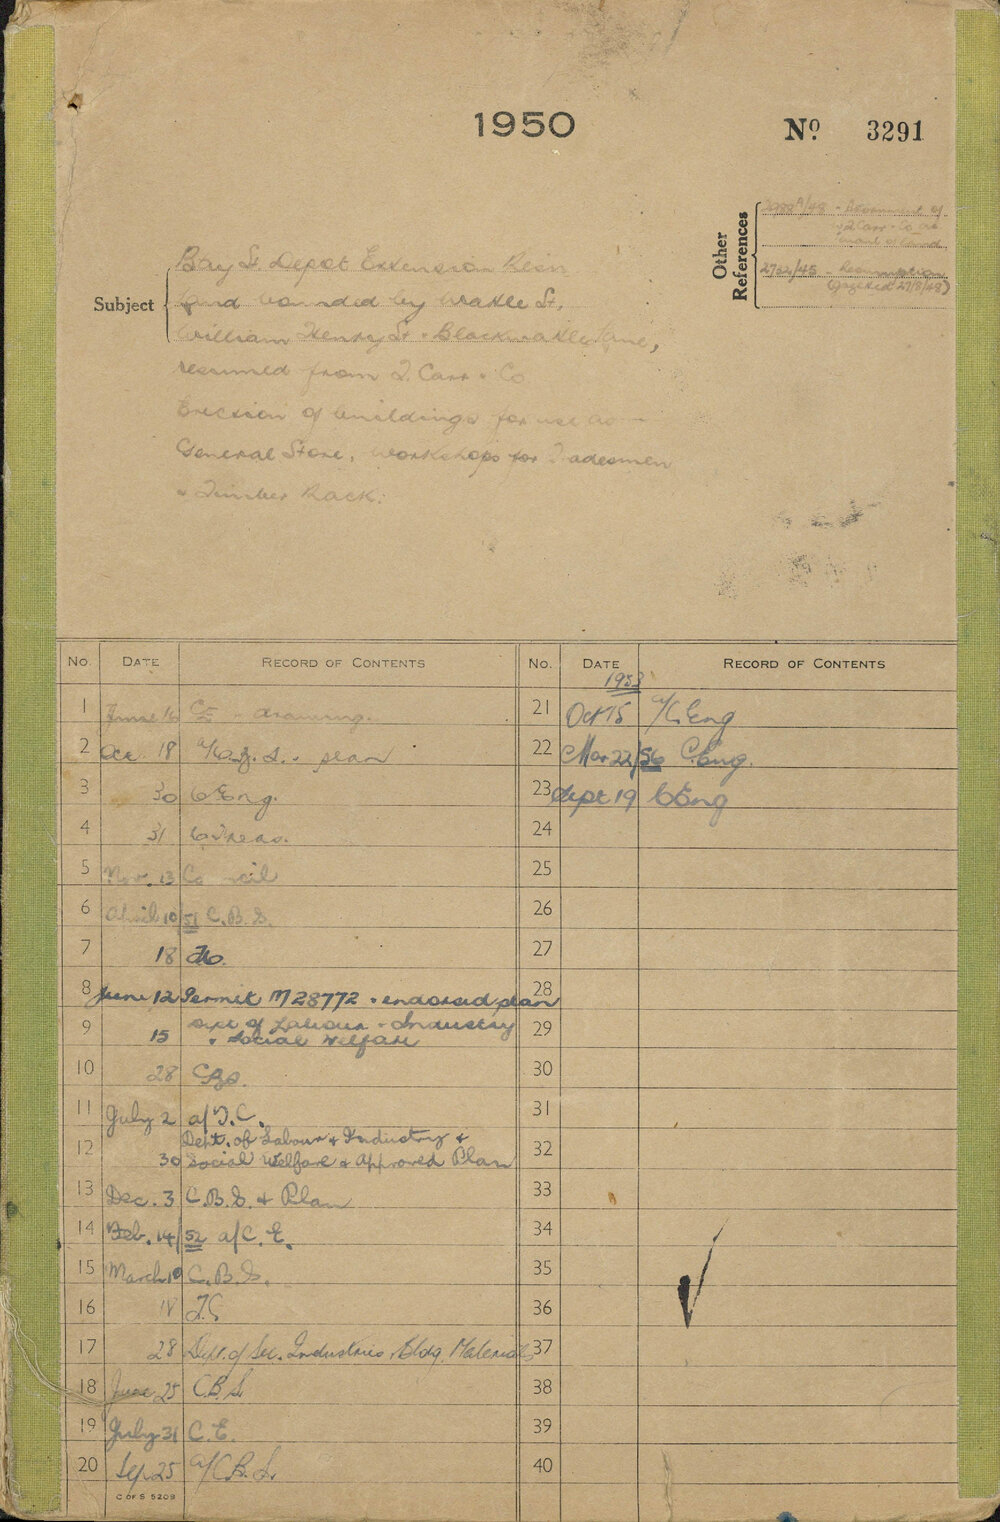 1950
Nº 3291
Other References
2982A/48 - of
T. Carr & Co
2732/45 - Resumption
(gazetted 27/8/48)
Subject
Bay St Depot Extension
land bounded by Wattle St,
William Henry St & Blackwattle Lane,
resumed from T. Carr & Co
Erection of buildings for use as
General Store, workshops for Tradesmen
& Timber Rack.
No DATE RECORD OF CONTENTS
1 June 16 CE - drawing.
2 Oct 18 plan
3 30 C Eng.
4 31 C Treas.
5 Nov. 13 Council
6 April 10/51 C.B.S.
7 18 Do.
8 June 12 Permit M28772 & endorsed plan
9 15 Dept of Labour & Industry
& Social Welfare
10 28 CBS.
11 July 2 a/T.C.
12 30 Dept. of Labour & Industry &
Social Welfare & Approved Plan
13 Dec. 3 C.B.S. & Plan
14 Feb. 14/52 a/C.E.
15 March 10 C.B.S.
16 18 T.C
17 28 Dept. of Sec. Industries Bldg. Materials
18 June 25 C.B.S.
19 July 31 C.E.
20 Sep 25 a/C.B.S.
C OF S 5209
No. DATE RECORD OF CONTENTS
1953
21 Oct 15 a/C.Eng
22 Mar 22/56 C.Eng.
23 Sept 19 C Eng
24
25
26
27
28
29
30
31
32
33
34
35
36
37
38
39
40